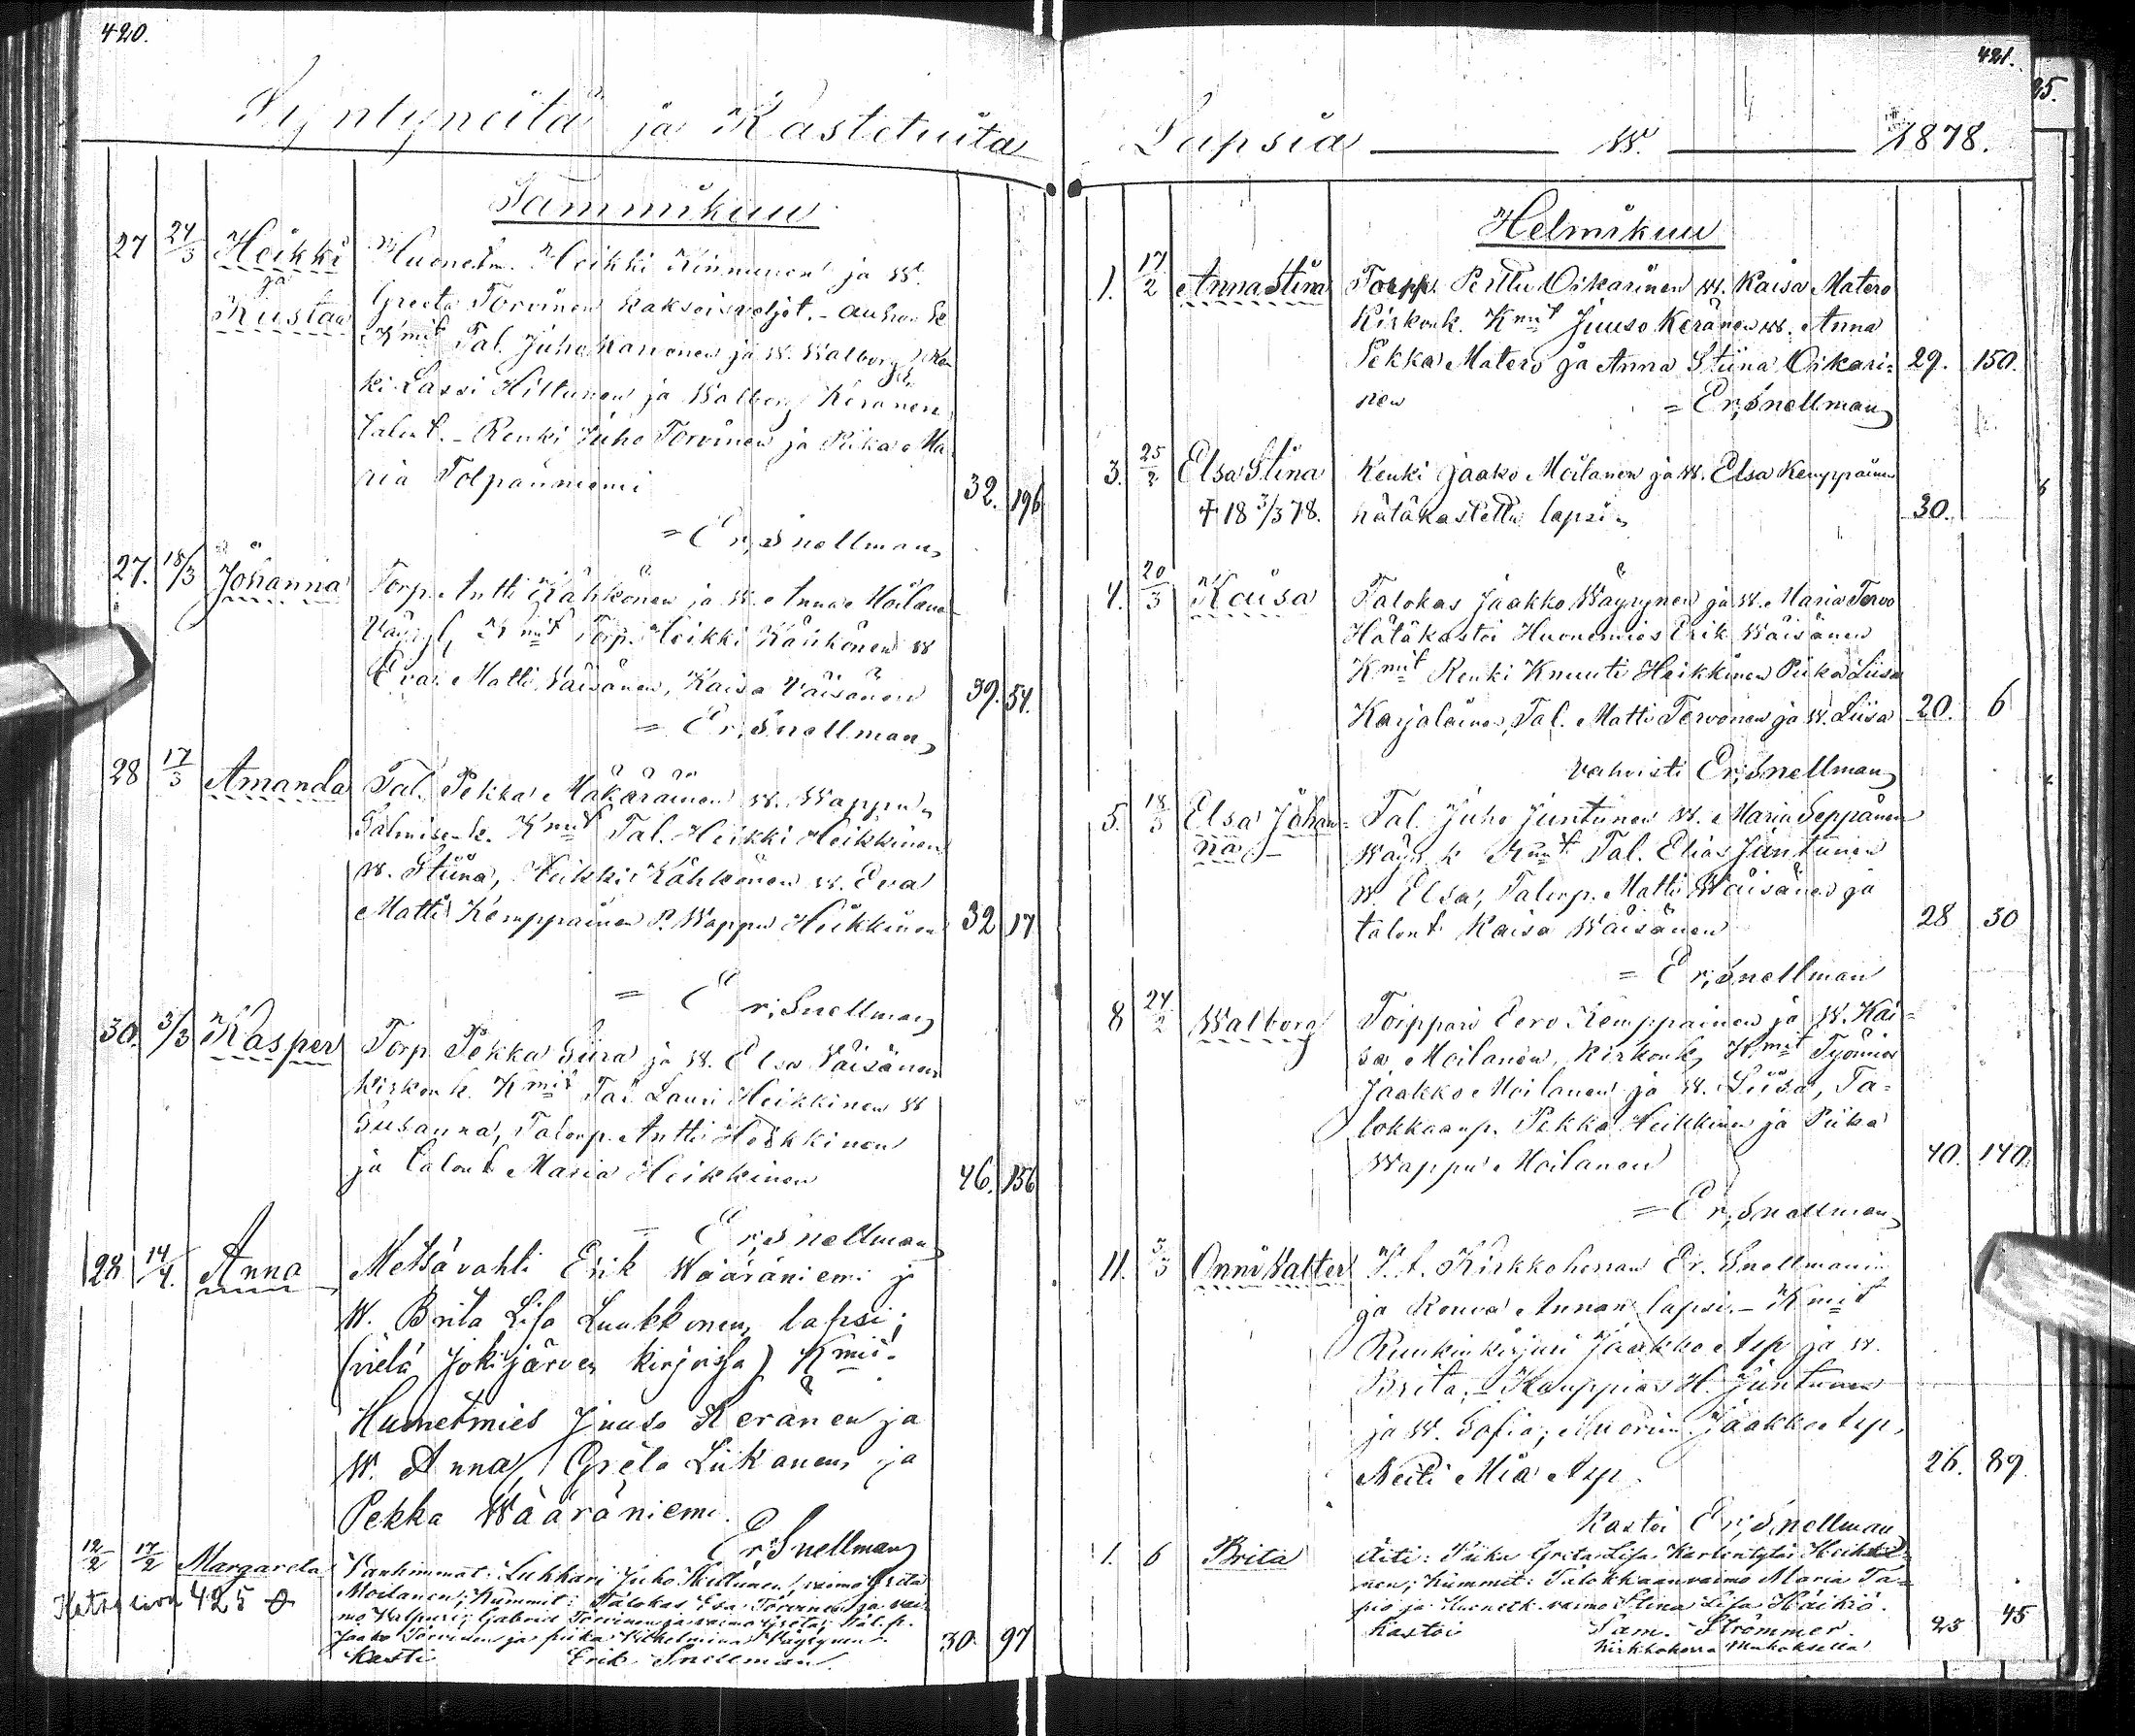 420.
Syntyneitä ja Kastetuita
Tammikuu
27 24/3 Heikki Huonetm. Heikki Kinnunen ja W.
ja Greeta Torvinen kaksoisveljet.
Kustaa Kmit Tal. Juho Karvonen ja W. Walborg,
ki Lassi Hiltunen ja Walborg Keränen
talont. - Renki Juho Torvinen ja Piika Ma
ria Tolpanniemi 32. 196
= Er. Snellman
27. 18/3 Johanna Torp. Antti Kähkönen ja W. Anna Moilanen
Väyryl, Kmit Torp. Heikki Kähkönen W
Eva. Matti Väisänen, Kaisa Väisänen 39. 54.
= Er. Snellman
28 17/3 Amanda Tal. Pekka Mäkäräinen W. Wappu
Salmisenk. Kmit Tal. Heikki Heikkinen
W. Stiina, Heikki Kähkönen W. Eva
Matti Kemppainen P. Wappu Heikkinen 32 17
= Er. Snellman
30. 3/3 Kasper Torp. Pekka Siira ja W. Elsa Väisänen
Kirkonk. Kmit Tal Lauri Heikkinen W
Susanna, Talonp. Antti Heikkinen
ja talont Maria Heikkinen 46. 156
= Er. Snellman
28 14/4. Anna Metsävahti Erik Wääräniemi ja
W. Brita Lisa Luukkonen, lapsi;
(vielä Jokijärven kirjoissa) Kmit.
Huonetmies Juuso Keränen ja
W. Anna, Greta Liikanen, ja
Pekka Wääräniemi.
Er. Snellman
12/2 17/2 Margareta Vanhimmat: Lukkari Juho Kiltunen, vaimo Greta
Moilanen; Kummit: Talokas Esa Torvinen ja vai-
Katso sivu 425 mo Valpuri; Gabriel Torvinen ja vaimo Greta; Tal. p.
Jaako Torvinen ja piika Wilhelmina Väyrynen. 30. 97
Kasti Erik Snellman.
421.
25.
Lapsia W. 1878.
Helmikuu
1. 17/2 Anna Stina Torpp. Perttu Oikarinen W. Kaisa Matero
Kirkonk. Kmit Juuso Keränen W. Anna
Pekka Matero ja Anna Stiina Oikari= 29. 150.
nen = Er. Snellman
3. 25/2 Elsa Stina Renki Jaako Moilanen ja W. Elsa Kemppainen
† 18 3/3 78. hätäkastettu lapsi 30.
4. 20/3 Kaisa Talokas Jaakko Wäyrynen ja W. Maria Tervo
Hätäkastoi Huonemies Erik Wäisänen
Kmit Renki Knuuti Heikkinen Piika Liisa
Karjalainen, Tal. Matti Tervonen ja W. Liisa 20. 6
Vahvisti Er. Snellman
5. 18/3 Elsa Johan= Tal. Juho Juntunen W. Maria Seppänen
na Wäyr. k Kmit Tal. Elias Juntunen
W. Elsa, Talonp. Matti Wäisänen ja
talont Kaisa Wäisänen 28 30
= Er. Snellman
8 24/2 Walborg Torppari Eero Kemppainen ja W. Kai=
sa Moilanen, Kirkonk, Kmit Työmies
Jaakko Moilanen ja W. Liisa, Ta=
lokkaanp. Pekka Heikkinen ja Piika
Wappu Moilanen 40. 140.
= Er. Snellman
11. 3/3 Onni Walter V.t. Kirkkoherran Er. Snellmanin
ja Rouva Annan lapsi. - Kmit
Ruukinkirjuri Jaakko Asp ja W.
Brita, - Kauppias H. Juntunen
ja W. Sofia; Nuorim. Jaakko Asp,
Neiti Mia Asp. 26. 89
Kastoi Er. Snellman
1. 6 Brita Äiti: Piika Greta Lisa Karlentytär Heikki-
nen; Kummit: Talokkaanvaimo Maria Ta-
pio ja Huonetk. vaimo Stina Lisa Häikiö.
Kastoi Sam. Strömmer. 25 45
Kirkkoherra Muhoksella